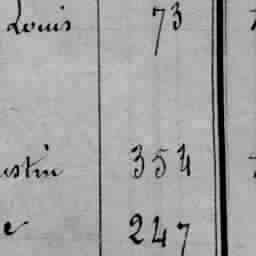 Louis 73
ustin 354
e 247